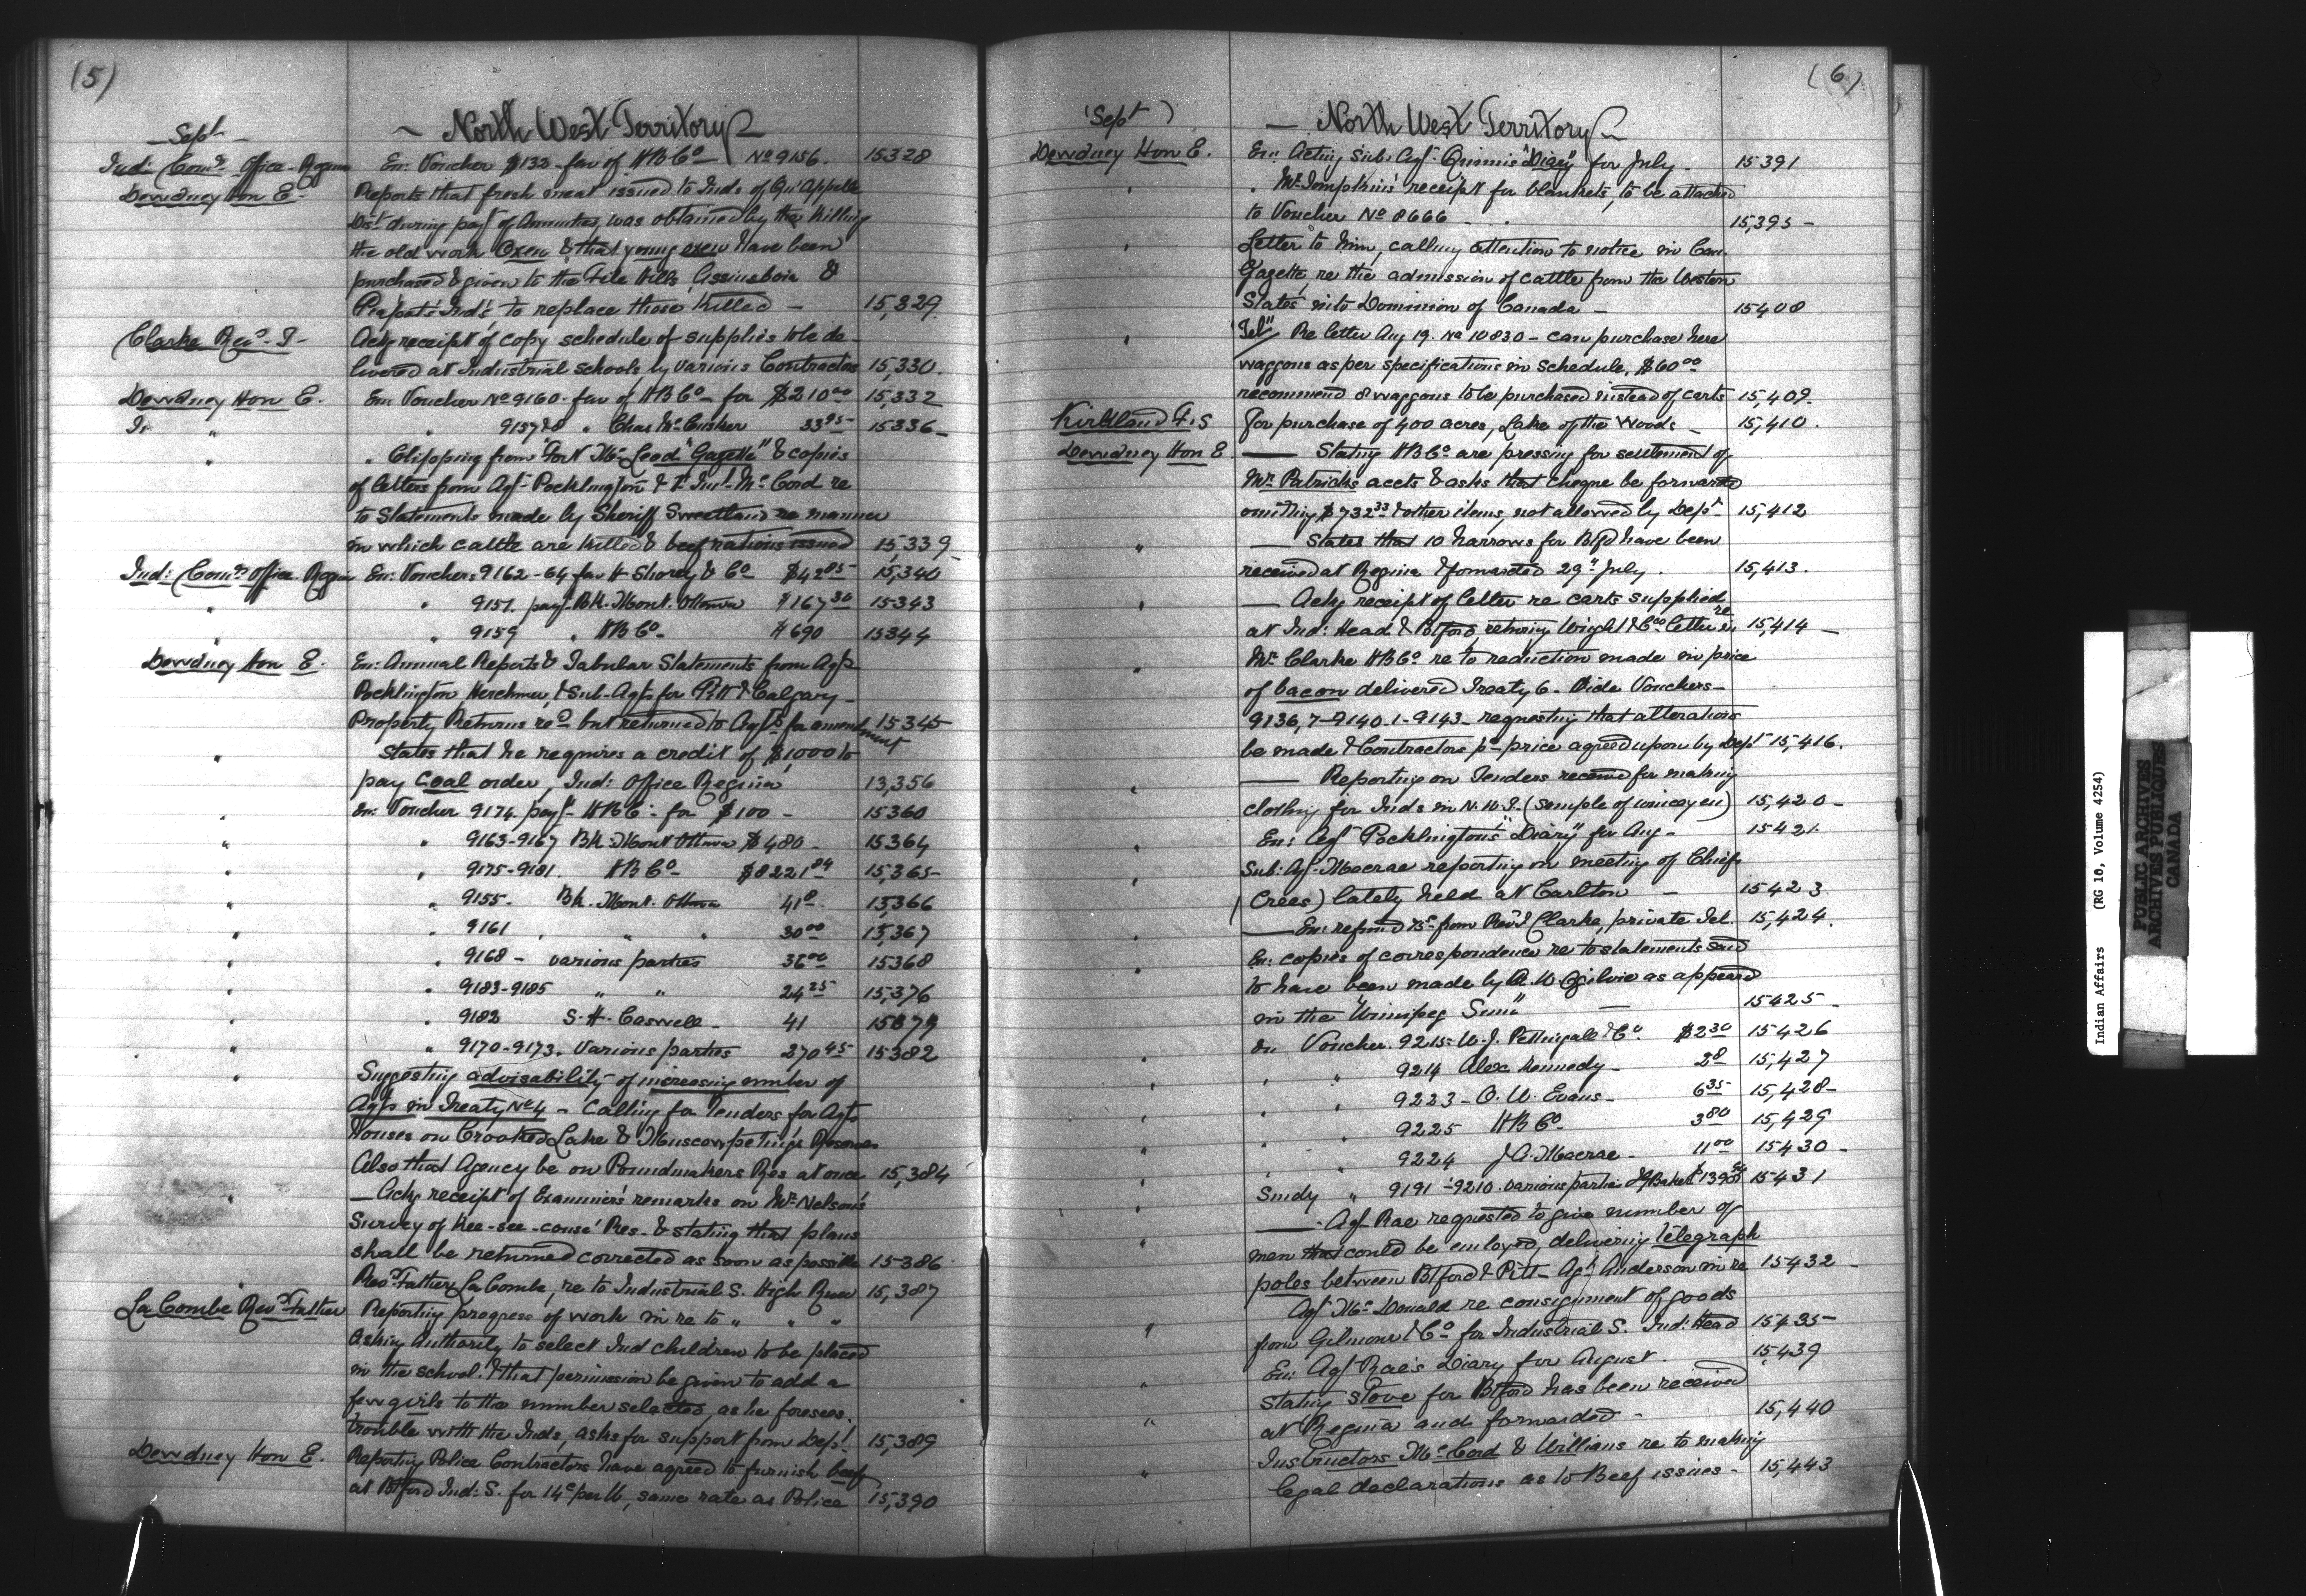 (5)
Sept
North West Territory
Ind: Comrs Office - Regina En: Voucher $133 - fav of HBCo No 9156. 15328
Dewdney Hon E. Reports that fresh meat issued to Inds of Qu'Appelle
Dist during payt of Annuities, was obtained by the killing
the old work Oxen & that young oxen have been
purchased & given to the File Hills, Assiniboia &
Piapot's Ind's, to replace those killed - 15,329.
Clarke Revd T- Ackg receipt of copy schedule of supplies to be de-
livered at Industrial schools by various Contractors 15,330.
Dewdney Hon E. En: Voucher No 9160. fav of HBCo - for $210.00 15,332
" 9157&8 " Chas McCusker 33.95 15336
" " Clipping from Fort McLeod "Gazette" & copies
of letters from Agt - Pocklington & Inst McCord re
to Statements made by Sheriff Sweetland re manner
in which cattle are killed & beef rations issued 15339
Ind: Comrs Office Regina En: Vouchers 9162-64 fav H Shorey & Co $42.85 15,340
" " 9151. payt Bk. Mont. Ottawa $167.30 15343
" " 9159 " HBCo $690 15344
Dewdney Hon E. En: Annual Reports & Tabular Statements from Agts
Pocklington Herchmer, & Sub-Agts for Pitt & Calgary -
Property Returns recd but returned to Agts for amendment 15345
" States that he requires a credit of $1,000 to
pay Coal order, Ind: Office Regina 13,356
" En: Voucher 9174 payt - HBCo - for $100 - 15360
" " 9163-9167 Bk: Mont Ottawa $480 - 15364
" " 9175-9181. HBCo - $8221.84 15,365
" " 9155 - Bk. Mont. Ottawa 41.8 15,366
" " 9161 " " " 30.00 15,367
" " 9168 - various parties 36.00 15368
" " 9183-9185 " " 24.25 15,376
" " 9182 S. H. Caswell - 41 15379
" " 9170-9173. Various parties 270.45 15382
" Suggesting advisability of increasing number of
Agts in Treaty No 4 - Calling for Tenders for Agts
houses on Crooked Lake & Muscowpeting's Reserves
Also that Agency be on Poundmakers Res at once 15,384
" - Ackg receipt of Examiner's remarks on Mr Nelson's
Survey of Kee-see-couse' Res - & stating that plans
shall be returned corrected as soon as possible 15386
" Revd Father LaCombe, re to Industrial S. High River 15,387
LaCombe Revd Father Reporting progress of work in re to " " "
Asking Authority to select Ind children to be placed
in the school & that permission be given to add a
few girls to the number selected, as he foresees
trouble with the Inds, asks for support from Dept 15,389
Dewdney Hon E. Reporting Police Contractors have agreed to furnish beef
at Btford Ind: S. for 14c per lb, same rate as Police 15,390
(6)
(Sept)
North West Territory
Dewdney Hon E. En: Acting Sub Agt - Quinn's "Diary" for July. 15391
" " Mr Tompkins' receipt for blankets, to be attached
to Voucher No 8666 15,395 -
" Letter to him, calling attention to notice in Can.
Gazette, re the admission of cattle from the Western
States into Dominion of Canada - 15408
" "Tel" Re letter Aug 19. No 10830 - can purchase here
waggons as per specifications in schedule, $60.00
recommend 8 waggons to be purchased instead of carts 15,409.
Kirkland F. S For purchase of 400 acres, Lake of the Woods - 15,410.
Dewdney Hon E - Stating HBCo are pressing for settlement of
Mr Patricks accts & asks that cheque be forwarded
omitting $732.33 & other items, not allowed by Dept 15,412
" - States that 10 harrows for Btfd have been
received at Regina & forwarded 29th July. 15,413.
" - Ackg receipt of letter re carts supplied
at Ind: Head & Btford, retaining Wright & Cos letter re 15,414 -
" Mr Clarke HBCo re to reduction made in price
of bacon delivered Treaty 6 - Vide Vouchers -
9136, 7-9140. 1-9143 - requesting that alterations
be made & Contractors pd - price agreed upon by Dept 15,416.
" - Reporting on Tenders received for making
clothing for Inds in N.W.T. (sample of winceyen) 15,420 -
" En: Agt Pocklington's "Diary" for Aug - 15421.
" Sub: Agt - Macrae reporting on meeting of Chiefs
(Crees) lately held at Carlton - 15423
" - En: refund 75c from Revd Clarke, private Tel. 15,424.
" En: copies of correspondence re to statements said
to have been made by A. W Ogilvie as appeared
in the "Winnipeg Sun" - 15425 -
En Voucher. 9215 - W. J. Pettingale & Co. $2.30 15426
" " 9214 Alex Kennedy - 2.8 15,427
" " 9223 - O. W. Evans - 6.35 15,428 -
" " 9225 HBCo 3.80 15,429
" " 9224 J A. Macrae - 11.00 15430 -
Sundy " 9191 - 9210. various parties 15431
" - Agt - Rae requested to give number of
men that could be employed, delivering telegraph
poles between Btford & Pitt - Agt Anderson in re 15432 -
" Agt McDonald re consignment of goods
from Gilmour & Co - for Industrial S. Ind: Head 15,435
" En: Agt Rae's Diary for August. 15,439
" Stating Stove for Btford has been received
at Regina and forwarded - 15,440
" Instructors McCord & Williams re to making
legal declarations as to Beef issues - 15,443
Indian Affairs (RG 10, Volume 4254)
PUBLIC ARCHIVES
ARCHIVES PUBLIQUES
CANADA